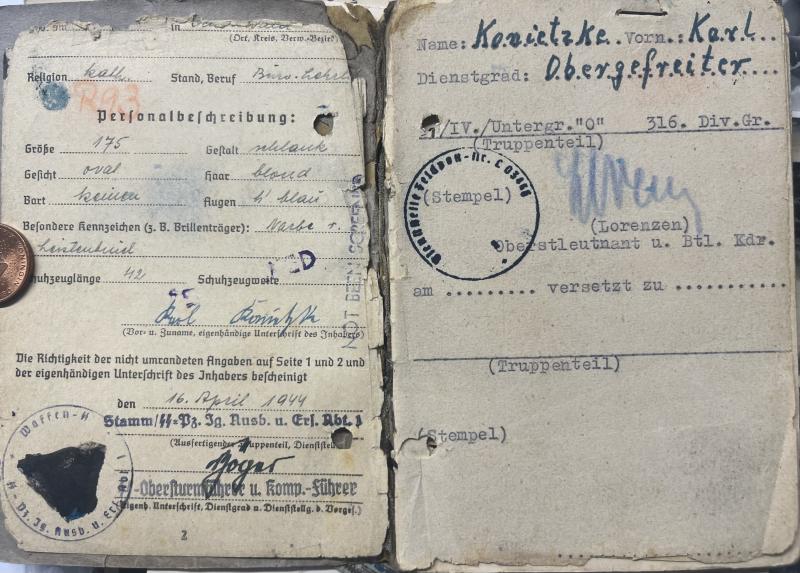 in
(Ort, Kreis, Verw.-Bezirk)
Religion kath. Stand, Beruf
R93
Personalbeschreibung:
Größe 175 Gestalt schlank
Gesicht oval Haar blond
Bart keinen Augen blau
Besondere Kennzeichen (z. B. Brillenträger): Narbe r.
Leistenbruch
Schuhzeuglänge 42 Schuhzeugweite
NOT BEEN SCREENED
Karl Konietzke
(Vor- u. Zuname, eigenhändige Unterschrift des Inhabers)
Die Richtigkeit der nicht umrandeten Angaben auf Seite 1 und 2 und
der eigenhändigen Unterschrift des Inhabers bescheinigt
den 16. April 1944
Stamm/SS-Pz. Jg. Ausb. u. Ers. Abt. 1
(Ausfertigender Truppenteil, Dienststelle)
-Obersturmführer u. Komp.-Führer
(Eigenh. Unterschrift, Dienstgrad u. Dienststellg. d. Vorges.)
Waffen-SS
SS-Pz. Jg. Ausb. u. Ers. Abt. 1
2
Name: Konietzke Vorn.: Karl
Dienstgrad: Obergefreiter
/IV./Untergr."O" 316. Div.Gr.
(Truppenteil)
Dienststelle Feldpost-Nr.
(Stempel)
(Lorenzen)
Oberstleutnant u. Btl. Kdr.
am ......... versetzt zu ............
(Truppenteil)
(Stempel)